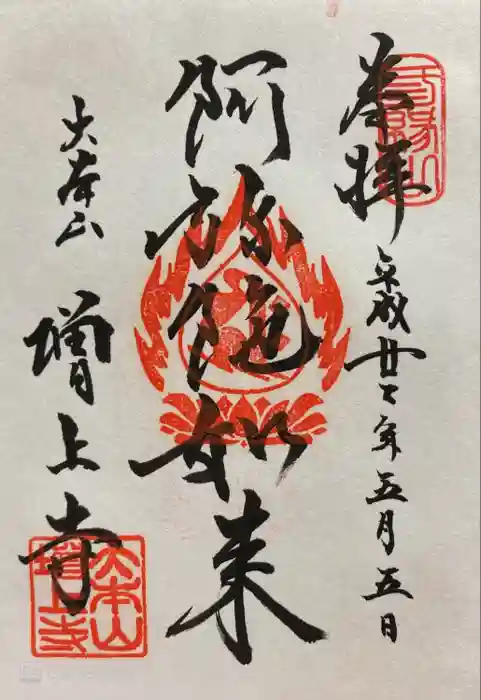 奉拝
平成廿七年五月五日
阿弥陀如来
大本山
増上寺
三縁山
大本山
増上寺